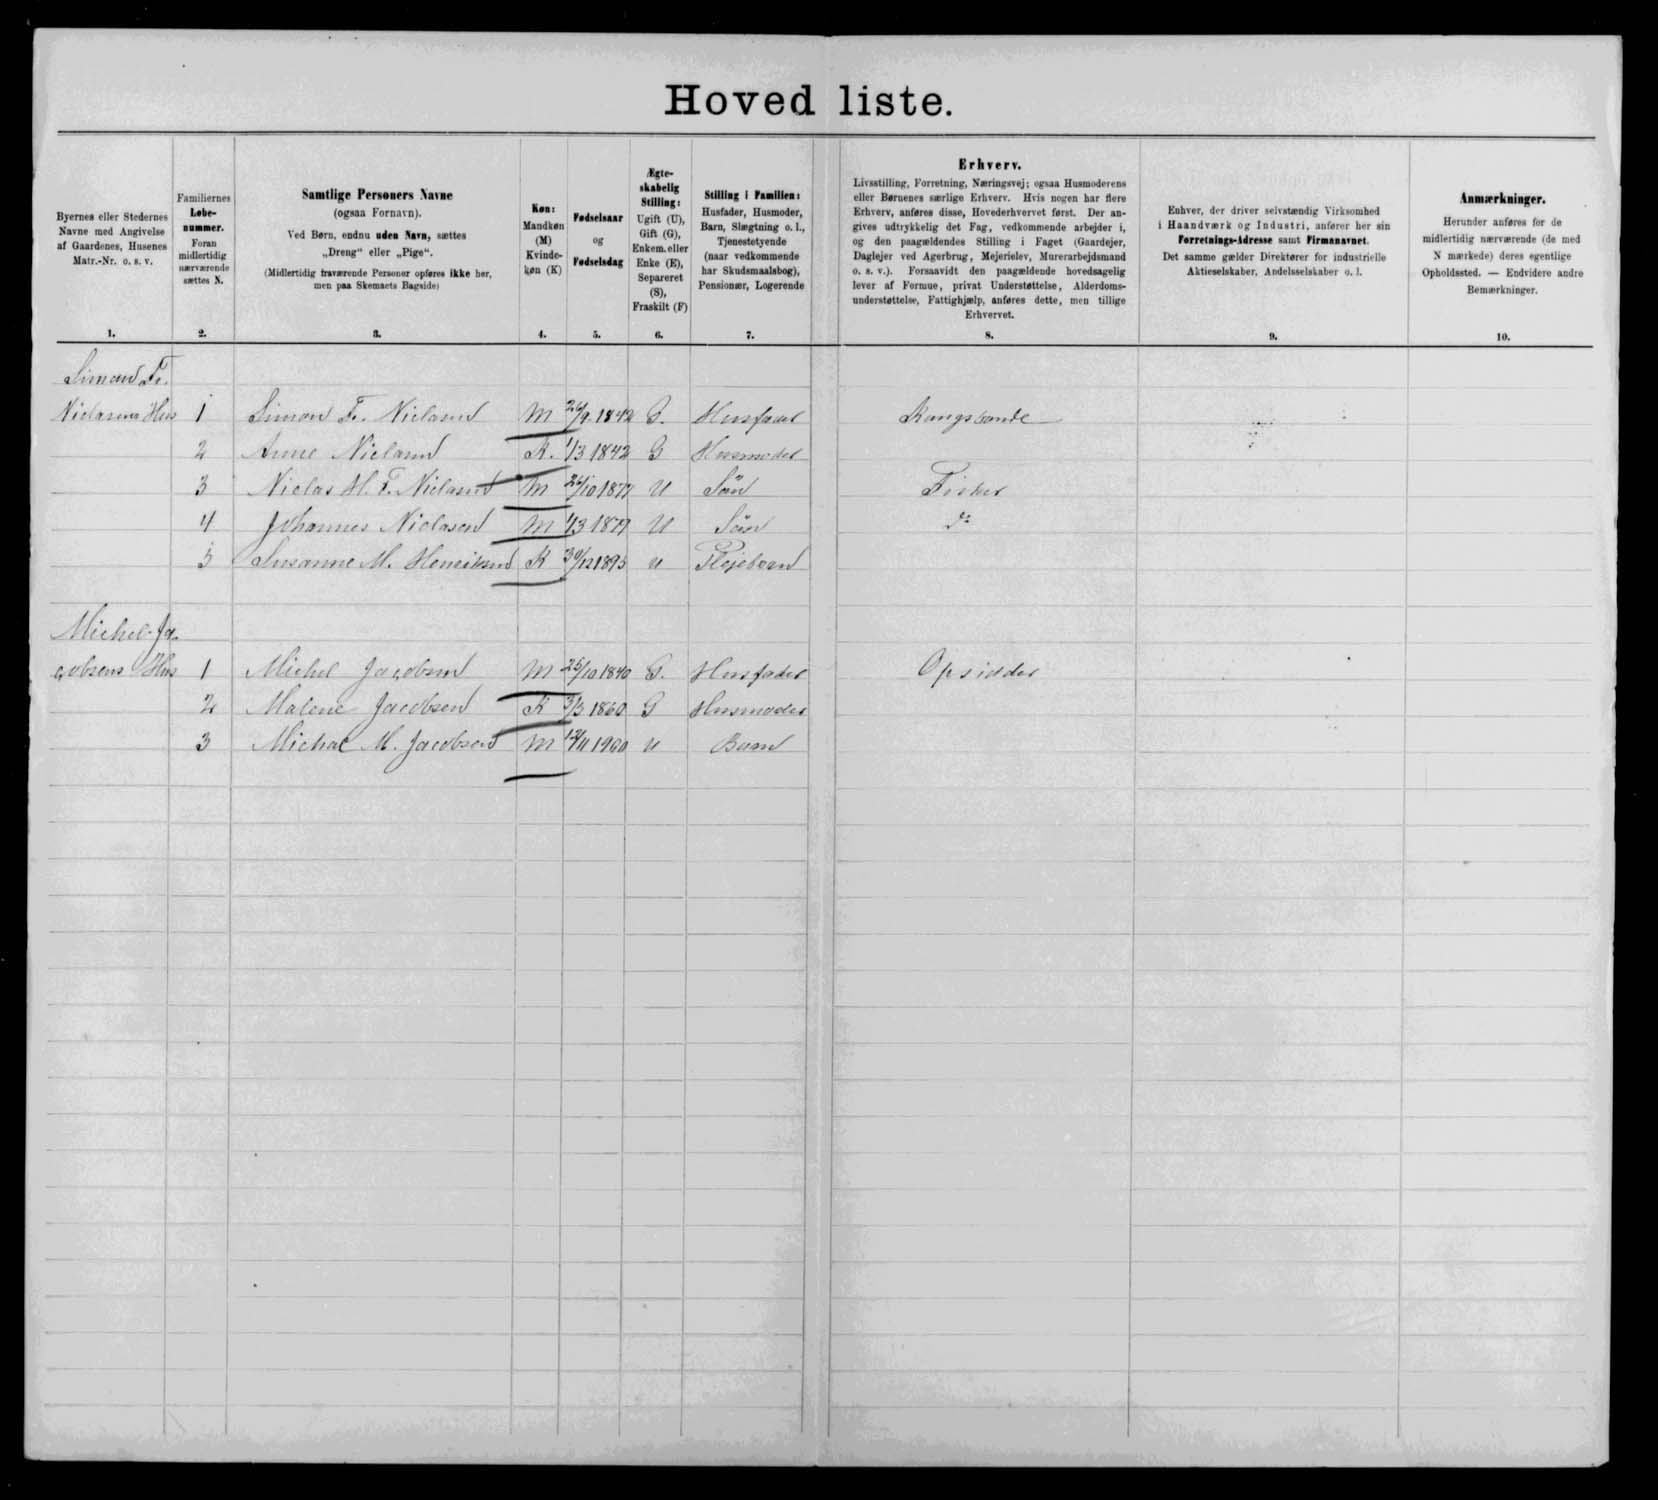 Hoved liste.
Byernes eller Stedernes
Navne med Angivelse
af Gaardenes, Husenes
Matr.-Nr. o. s. v.
1.
Familiernes
Løbe-
nummer.
Foran
midlertidig
nærværende
sættes N.
2.
Samtlige Personers Navne
(ogsaa Fornavn).
Ved Børn, endnu uden Navn, sættes
„Dreng“ eller „Pige“.
(Midlertidig fraværende Personer opføres ikke her,
men paa Skemaets Bagside)
3.
Køn:
Mandkøn
(M)
Kvinde-
køn (K)
4.
Fødselsaar
og
Fødselsdag
5.
Ægte-
skabelig
Stilling:
Ugift (U),
Gift (G),
Enkem. eller
Enke (E),
Separeret
(S),
Fraskilt (F)
6.
Stilling i Familien:
Husfader, Husmoder,
Barn, Slægtning o. l.,
Tjenestetyende
(naar vedkommende
har Skudsmaalsbog),
Pensionær, Logerende
7.
Erhverv.
Livsstilling, Forretning, Næringsvej; ogsaa Husmoderens
eller Børnenes særlige Erhverv. Hvis nogen har flere
Erhverv, anføres disse, Hovederhvervet først. Der an-
gives udtrykkelig det Fag, vedkommende arbejder i,
og den paagældendes Stilling i Faget (Gaardejer,
Daglejer ved Agerbrug, Mejerielev, Murerarbejdsmand
o. s. v.). Forsaavidt den paagældende hovedsagelig
lever af Formue, privat Understøttelse, Alderdoms-
understøttelse, Fattighjælp, anføres dette, men tillige
Erhvervet.
8.
Enhver, der driver selvstændig Virksomhed
i Haandværk og Industri, anfører her sin
Forretnings-Adresse samt Firmanavnet.
Det samme gælder Direktører for industrielle
Aktieselskaber, Andelsselskaber o. l.
9.
Anmærkninger.
Herunder anføres for de
midlertidig nærværende (de med
N mærkede) deres egentlige
Opholdssted. — Endvidere andre
Bemærkninger.
10.
Simon Fr.
Niclasens Hus 1 Simon Fr. Niclasen M 26/9 1842 G. Husfader Kongsbonde
2 Anne Niclasen K. 1/3 1842 G Husmoder
3 Niclas H. F. Niclasen M 26/10 1877 U Sön Fisker
4 Johannes Niclasen M 1/3 1879 U Sön do
5 Susanne M. Henriksen K 30/12 1895 u Plejebarn
Michel Ja-
cobsens Hus 1 Michel Jacobsen M 25/10 1840 G. Husfader Opsidder
2 Malene Jacobsen K 3/3 1860 G Husmoder
3 Michal M. Jacobsen M 12/11 1900 u Barn